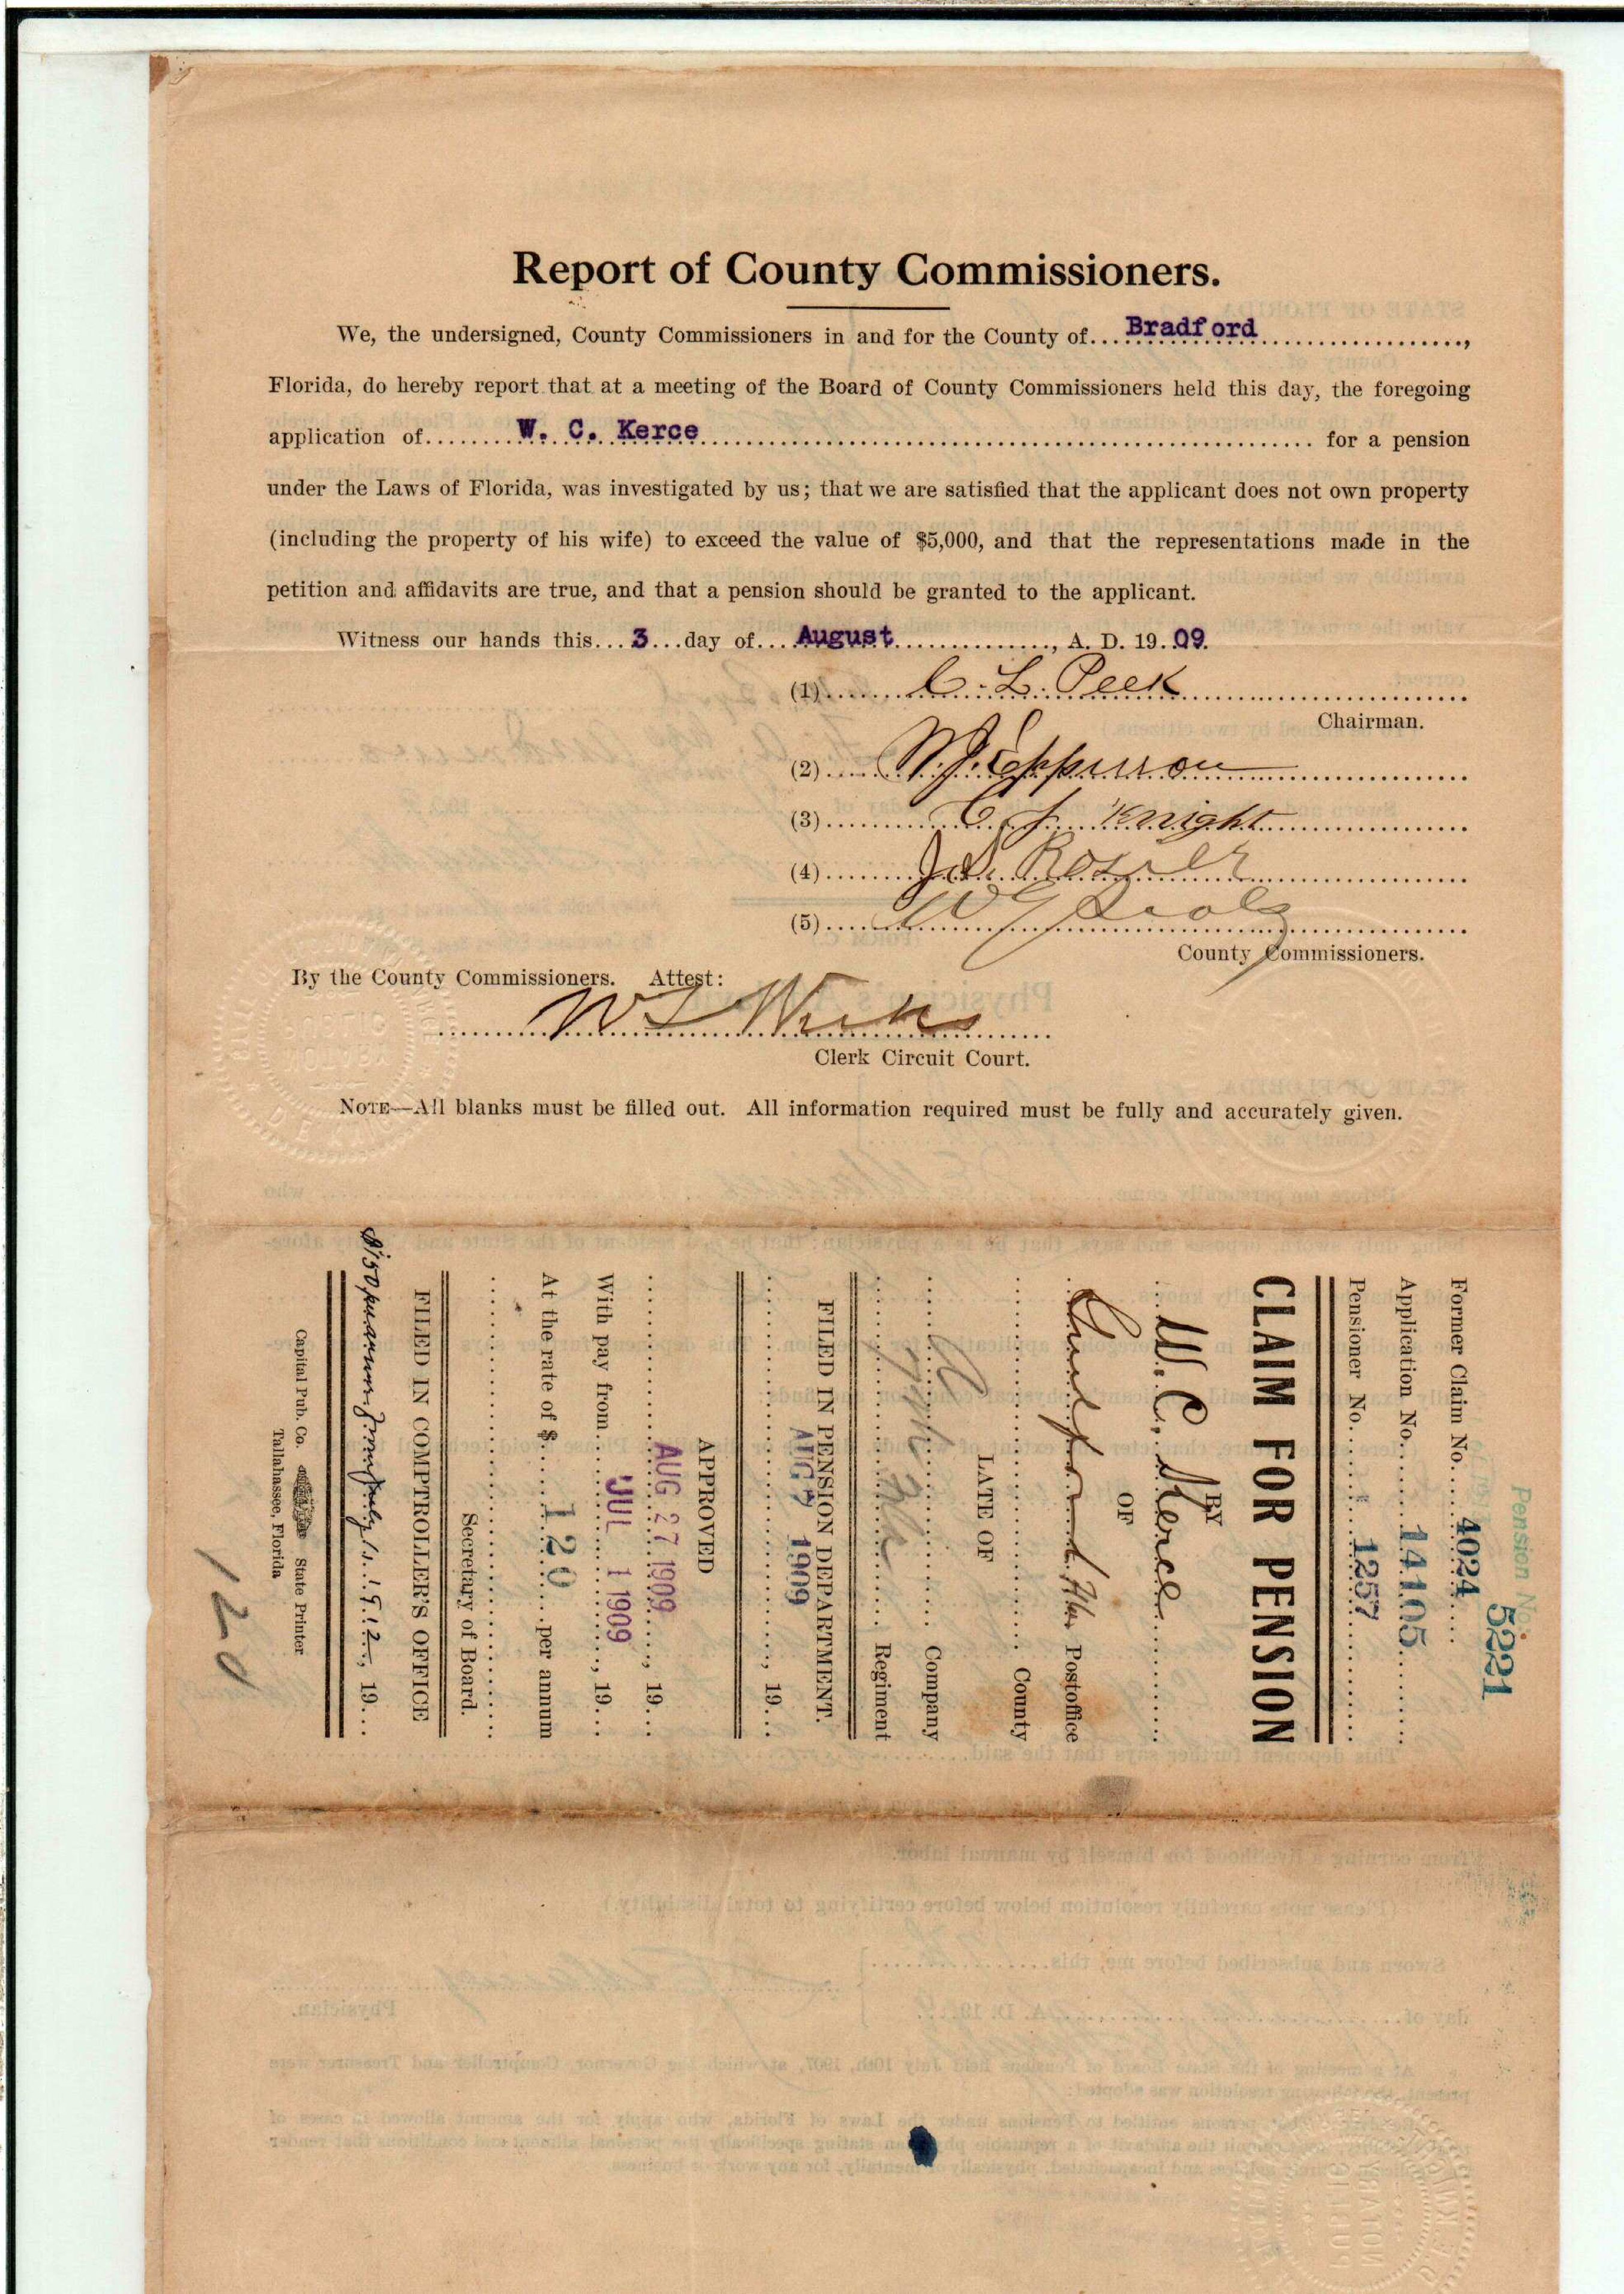 Report of County Commissioners.
We, the undersigned, County Commissioners in and for the County of... Bradford ...,
Florida, do hereby report that at a meeting of the Board of County Commissioners held this day, the foregoing
application of... W. C. Kerce ... for a pension
under the Laws of Florida, was investigated by us; that we are satisfied that the applicant does not own property
(including the property of his wife) to exceed the value of $5,000, and that the representations made in the
petition and affidavits are true, and that a pension should be granted to the applicant.
Witness our hands this... 3 ...day of... August ..., A. D. 19..09.
(1) C. L. Peek
Chairman.
(2) Epperson
(3) C J Knight
(4) Rosier
(5) W G
County Commissioners.
By the County Commissioners. Attest:
Clerk Circuit Court.
NOTE—All blanks must be filled out. All information required must be fully and accurately given.
Pension No.
5221
Former Claim No. 4024
Application No. 14105
Pensioner No. 1257
CLAIM FOR PENSION
BY
W. C. Kerce
OF
Postoffice
County
LATE OF
Company
Regiment
FILED IN PENSION DEPARTMENT.
AUG 7 1909, 19...
APPROVED
AUG 27 1909, 19...
With pay from JUL 1 1909, 19...
At the rate of $ 120 per annum
Secretary of Board.
FILED IN COMPTROLLER'S OFFICE
$150 per annum from July 1. 1912, 19...
Capital Pub. Co. State Printer
Tallahassee, Florida
120